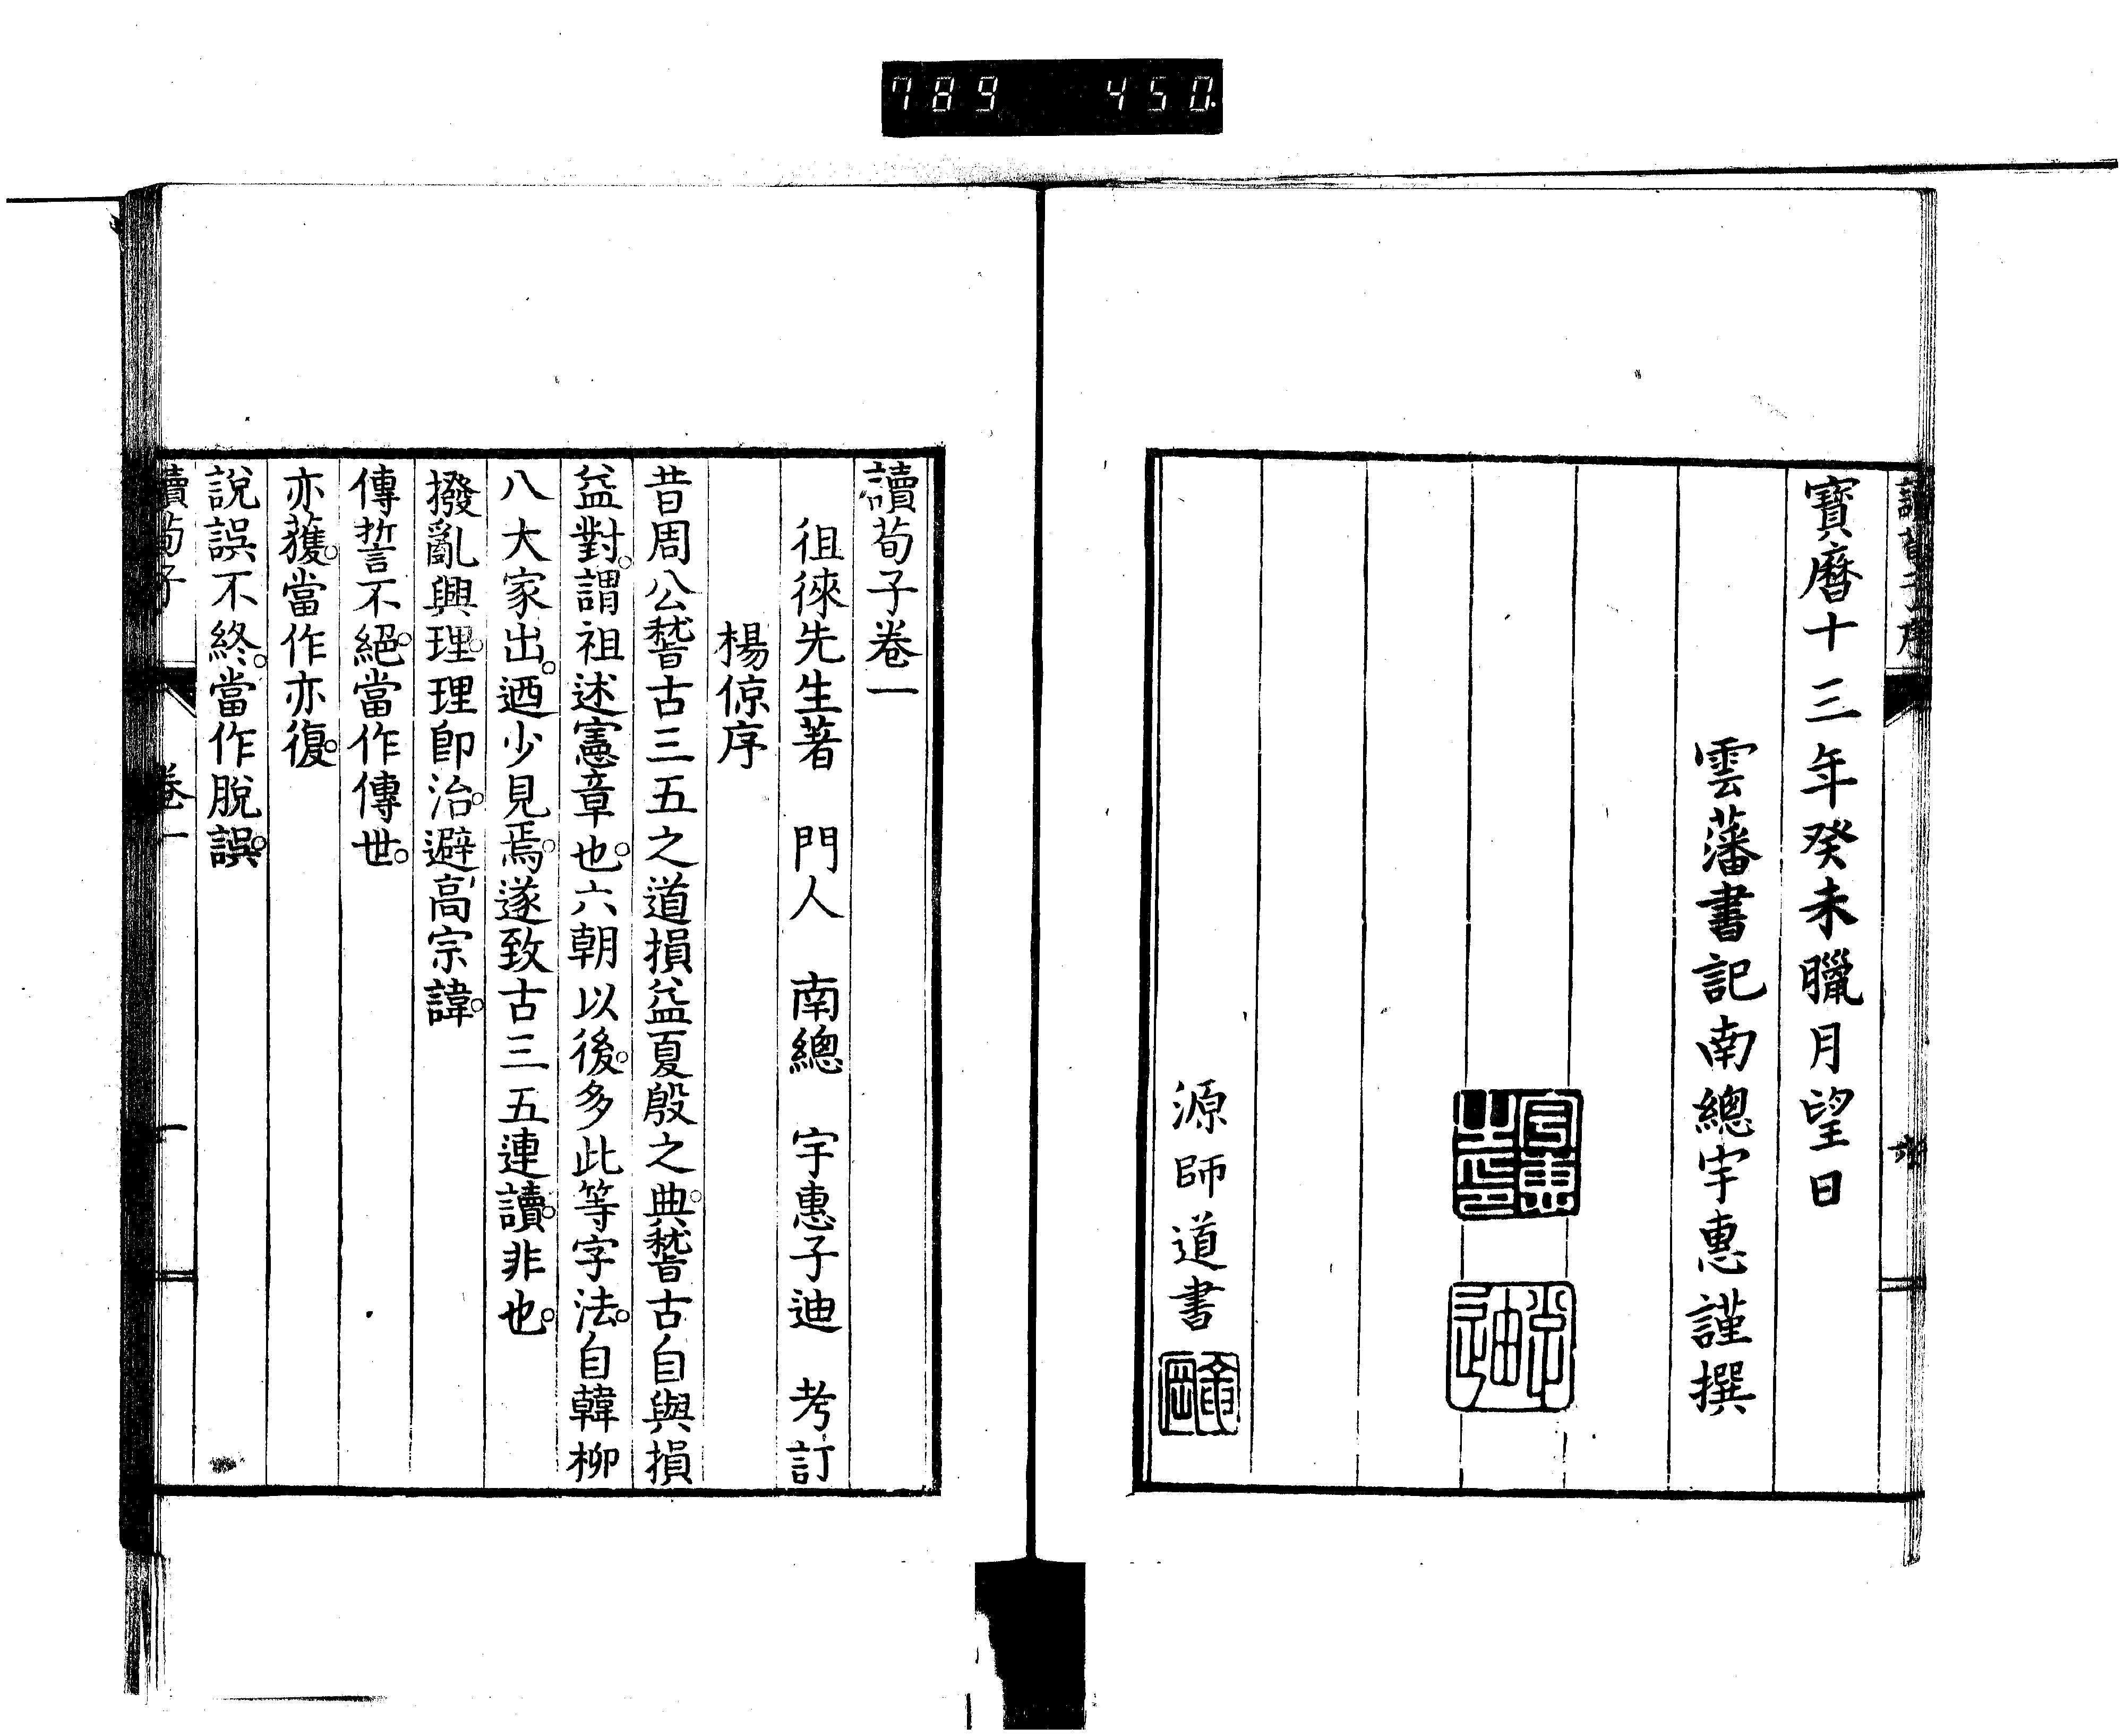 789 450
讀荀子序
六
寶曆十三年癸未臘月望日
雲藩書記南總宇惠謹撰
源師道書
讀荀子卷一
徂徠先生著 門人 南總 宇惠子迪 考訂
楊倞序
昔周公嵆古三五之道損益夏殷之典。嵆古自與損
益對。謂祖述憲章也。六朝以後。多此等字法。自韓柳
八大家出。迺少見焉。遂致古三五連讀。非也。
撥亂興理。理卽治。避高宗諱。
傳誓不絕。當作傳世。
亦蒦。當作亦復。
說誤不終。當作脫誤。
讀荀子 卷一 一